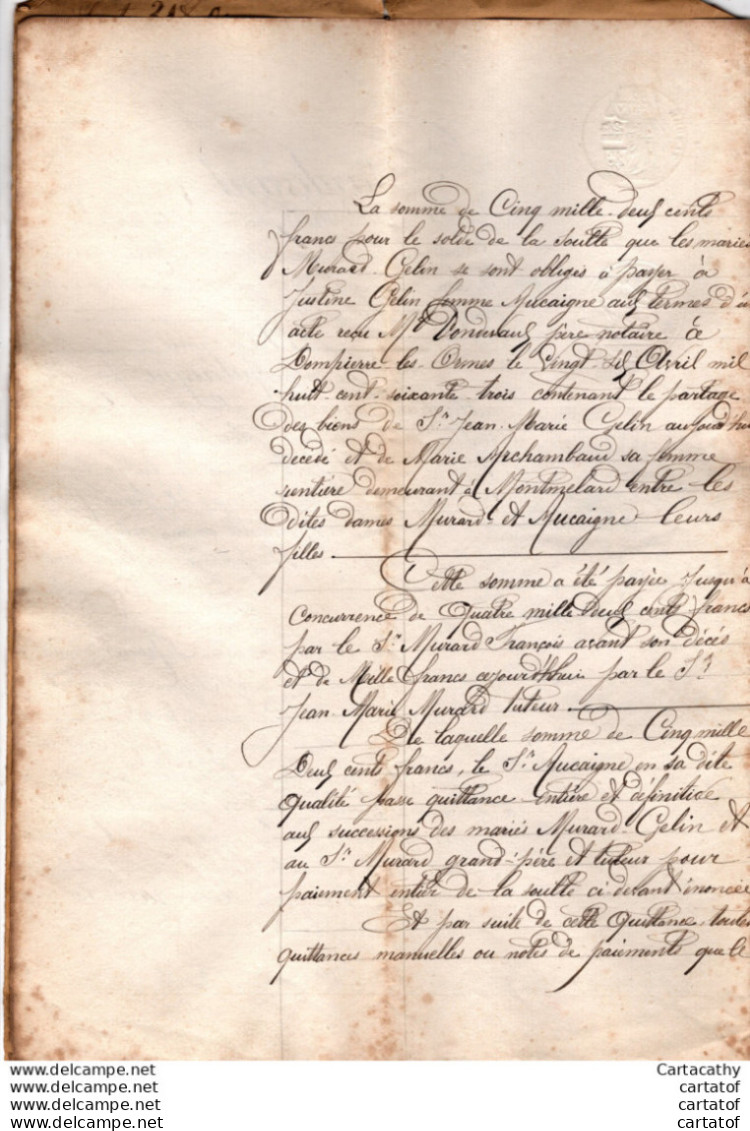 La somme de Cinq mille deux cents
francs pour le solde de la soulte que les mariés
Murard-Gelin se sont obligés à payer à
Justine Gelin femme Mucaigne aux termes d'u
acte reçu Me père notaire à
Dompierre-les-Ormes le vingt-six Avril mil
huit cent soixante trois contenant le partage
des biens de Sr Jean-Marie Gelin aujourd'hui
décédé et de Marie Archambaud sa femme
rentière demeurant à Montmelard entre les
dites dames Murard et Mucaigne leurs
filles
Cette somme a été payée jusqu'à
concurrence de Quatre mille deux cents francs
par le Sr Murard François avant son décès
et de Mille francs cejourd'hui par le Sr
Jean-Marie Murard tuteur
De laquelle somme de Cinq mille
Deux cents francs, le Sr Mucaigne en sa dite
qualité passe quittance entière et définitive
aux successions des mariés Murard-Gelin et
au Sr Murard grand-père et tuteur pour
paiement entier de la soulte ci-devant énoncée
Et par suite de cette Quittance, toutes
quittances manuelles ou notes de paiements que le
www.delcampe.net
www.delcampe.net
www.delcampe.net
www.delcampe.net
Cartacathy
cartatof
cartatof
cartatof